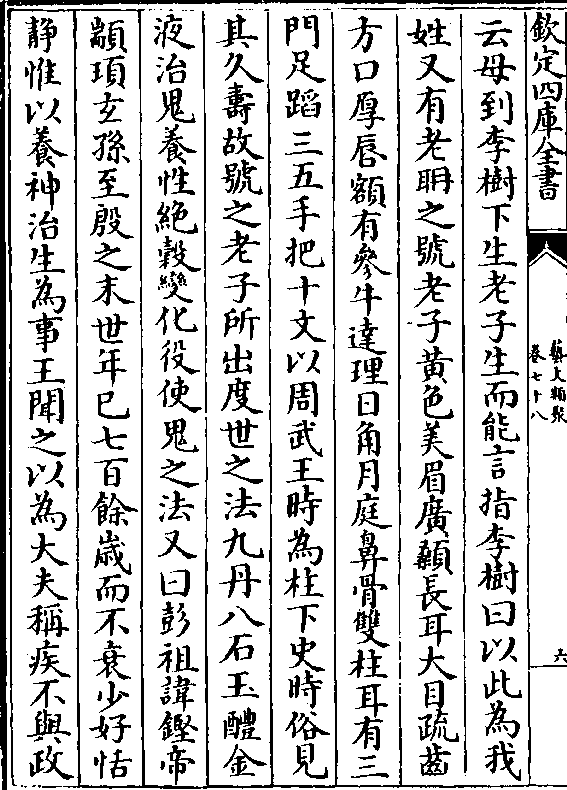 欽定四庫全書
藝文類聚
卷七十八
六
云母到李樹下生老子生而能言指李樹曰以此為我
姓又有老耼之號老子黃色美眉廣顙長耳大目疏齒
方口厚唇額有參牛達理日角月庭鼻骨雙柱耳有三
門足蹈三五手把十文以周武王時為柱下史時俗見
其久壽故號之老子所出度世之法九丹八石玉醴金
液治鬼養性絶穀變化役使鬼之法又曰彭祖諱鏗帝
顓頊玄孫至殷之末世年已七百餘歲而不衰少好恬
靜惟以養神治生為事王聞之以為大夫稱疾不與政